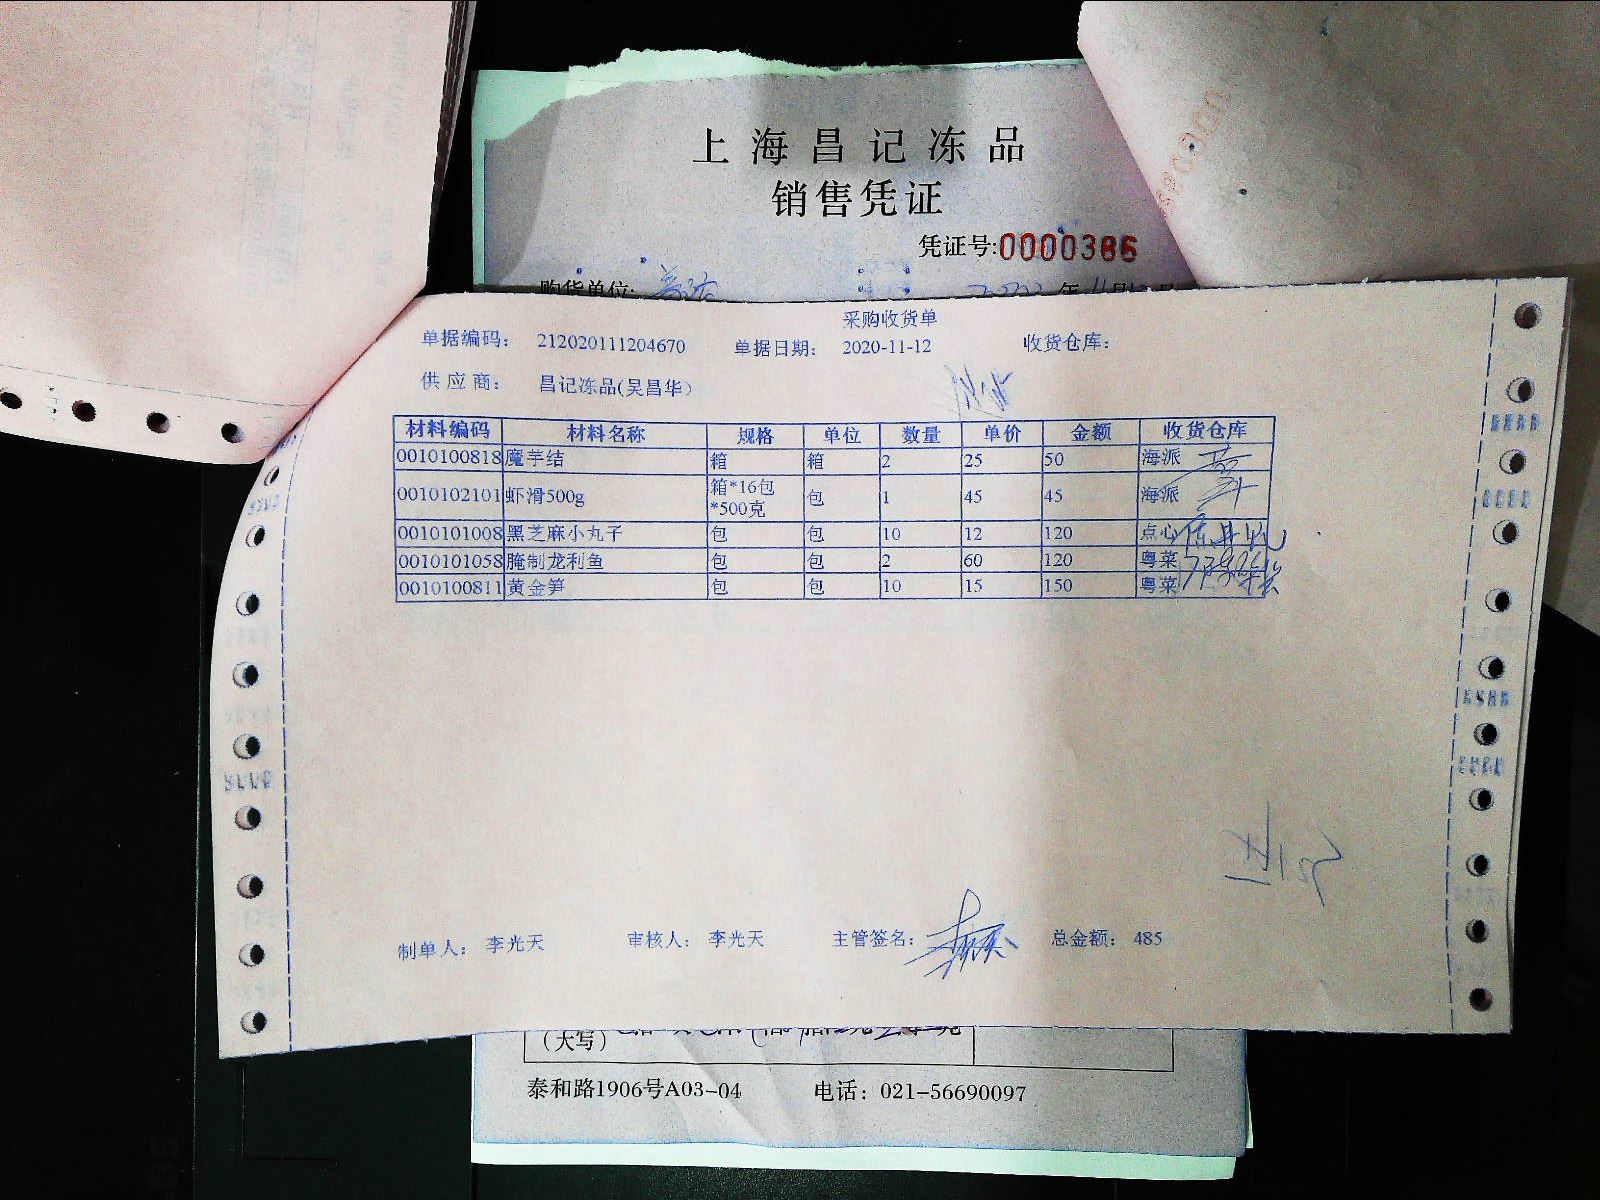 上海昌记冻品
销售凭证
凭证号:0000386
购货单位:
采购收货单
单据编码: 212020111204670 单据日期: 2020-11-12 收货仓库:
供应商: 昌记冻品(吴昌华)
材料编码 材料名称 规格 单位 数量 单价 金额 收货仓库
0010100818 魔芋结 箱 箱 2 25 50 海派
0010102101 虾滑500g 箱*16包*500克 包 1 45 45 海派
0010101008 黑芝麻小丸子 包 包 10 12 120 点心
0010101058 腌制龙利鱼 包 包 2 60 120 粤菜
0010100811 黄金笋 包 包 10 15 150 粤菜
制单人: 李光天 审核人: 李光天 主管签名: 总金额: 485
(大写)
泰和路1906号A03-04 电话: 021-56690097